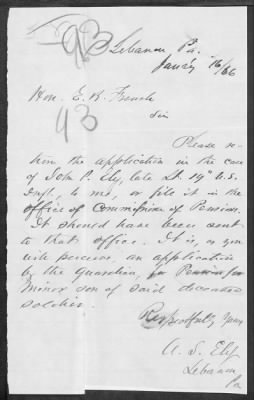 93
Lebanon Pa.
Jan'y 16/66
Hon. E. B. French
43
Sir
Please re-
turn the application in the case
of John P. Ely, late Lt. 19" U.S.
Inft. to me, or file it in the
office of Commissioner of Pension.
It should have been sent
to that office. It is, as you
will perceive, an application
by the Guardian, for Pension for
minor son of said deceased
soldier.
Respectfully Yours
A. S. Ely
Lebanon
Pa